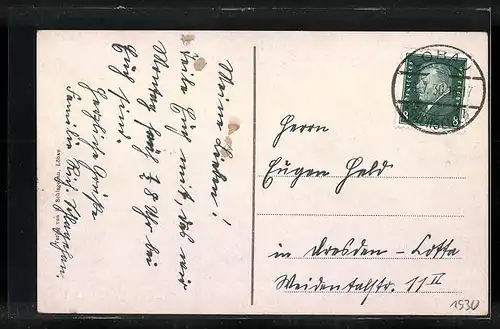 Meine Lieben!
Teile Euch mit, das wir
Montag früh ½ 8 Uhr bei
Euch sind.
Herzliche Grüße
Familie
LÖBAU
8 8
Herrn
Eugen Held
in Dresden - Cotta
Weidentalstr. 11 II
1930